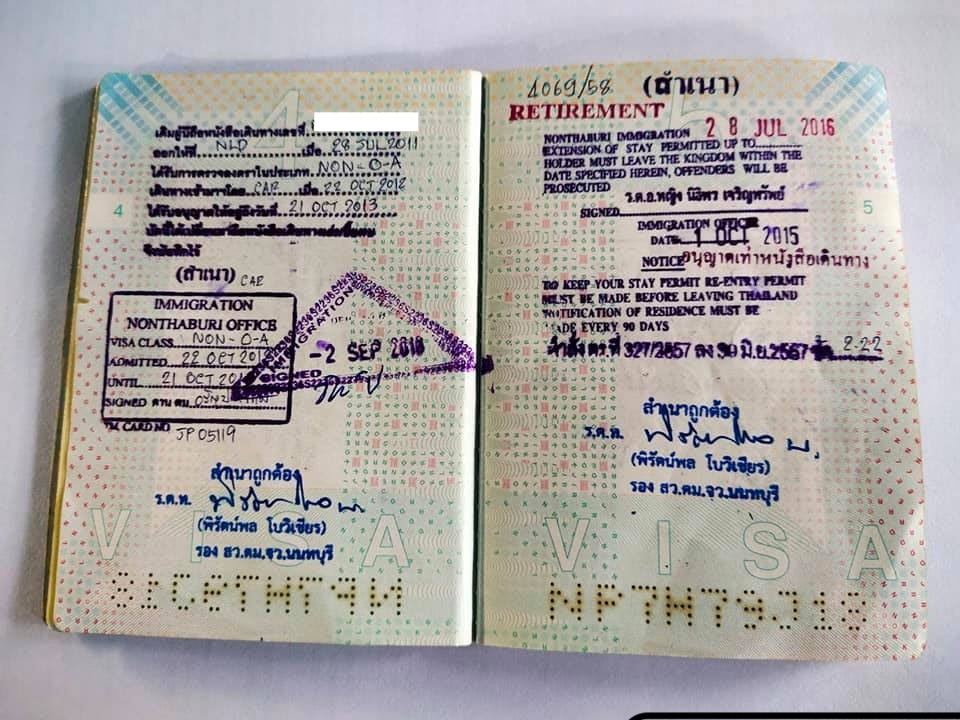 4
เดิมผู้ถือหนังสือเดินทางเลขที่
ออกให้ที่ NLD เมื่อ 28 JUL 2011
ได้รับการตรวจลงตราประเภท NON-O-A
เดินทางเข้ามาโดย CAR เมื่อ 22 OCT 2012
ได้รับอนุญาตให้อยู่ถึงวันที่ 21 OCT 2013
จึงบันทึกไว้
(สำเนา) CAR
IMMIGRATION
NONTHABURI OFFICE
VISA CLASS NON-O-A
ADMITTED 22 OCT 2012
UNTIL 21 OCT
SIGNED ด่าน ตม.
TM CARD NO JP 05119
IMMIGRATION
-2 SEP 2016
SIGNED
สำเนาถูกต้อง
ร.ต.ท.
(พิรัตน์พล โบวิเชียร)
รอง สว.ตม.จว.นนทบุรี
4
VISA
1069/58 (สำเนา)
RETIREMENT
NONTHABURI IMMIGRATION 28 JUL 2016
EXTENSION OF STAY PERMITTED UP TO
HOLDER MUST LEAVE THE KINGDOM WITHIN THE
DATE SPECIFIED HEREIN, OFFENDERS WILL BE
PROSECUTED
ร.ต.อ.หญิง นิธิพร เจริญทรัพย์
SIGNED
IMMIGRATION OFFICER
DATE 1 OCT 2015
NOTICE อนุญาตเท่าหนังสือเดินทาง
TO KEEP YOUR STAY PERMIT RE-ENTRY PERMIT
MUST BE MADE BEFORE LEAVING THAILAND
NOTIFICATION OF RESIDENCE MUST BE
MADE EVERY 90 DAYS
คำสั่ง ตร.ที่ 327/2557 ลง 30 มิ.ย.2557 ข้อ 2.22
สำเนาถูกต้อง
ร.ต.ท.
(พิรัตน์พล โบวิเชียร)
รอง สว.ตม.จว.นนทบุรี
5
VISA
NP7H79J18